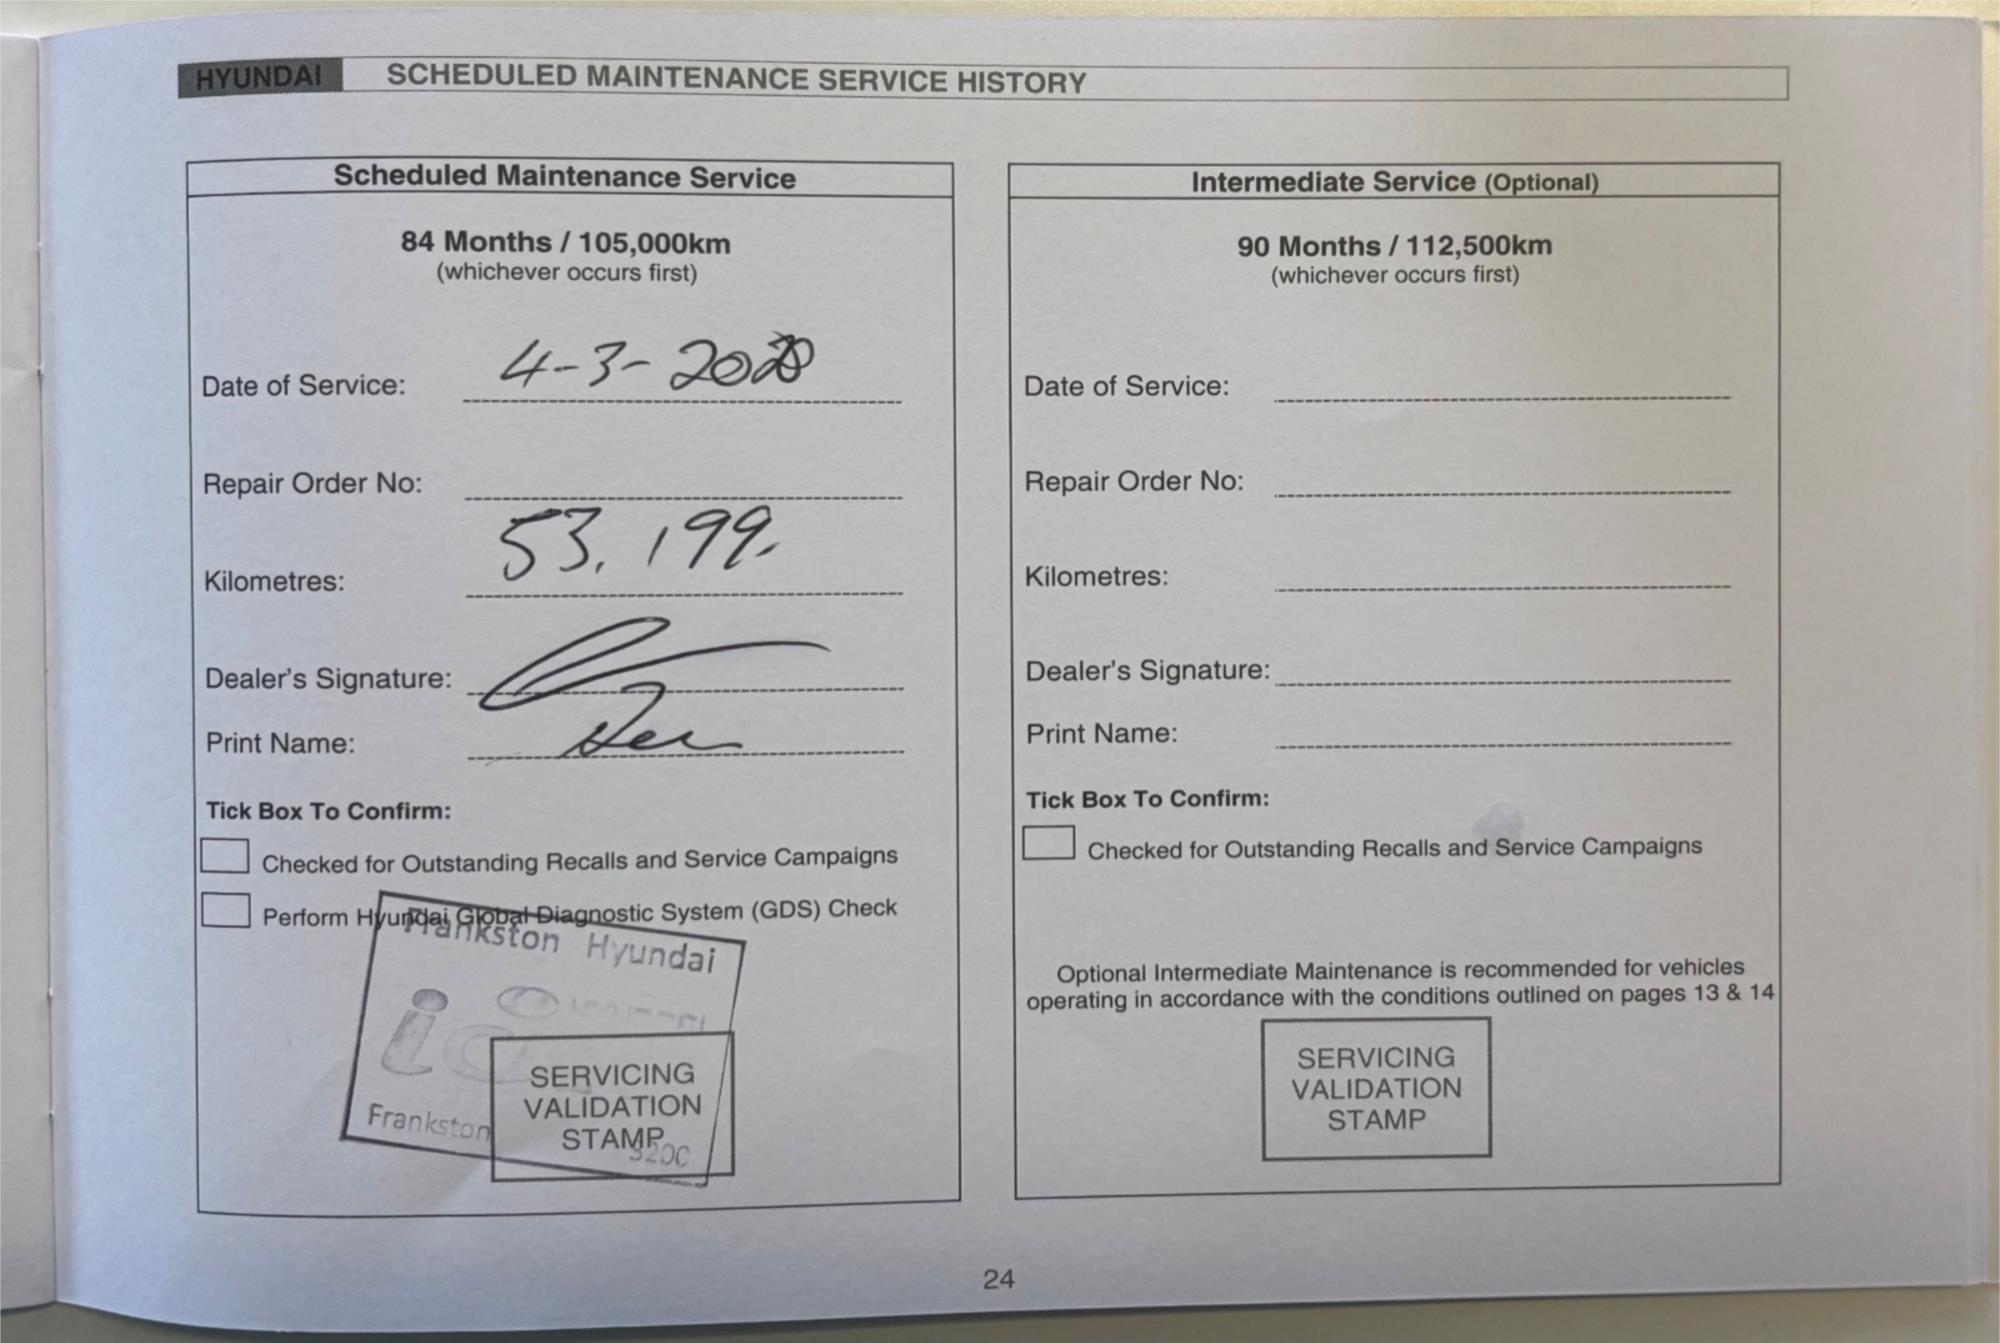 HYUNDAI SCHEDULED MAINTENANCE SERVICE HISTORY
Scheduled Maintenance Service
84 Months / 105,000km
(whichever occurs first)
Date of Service: 4-3-2020
Repair Order No:
Kilometres: 53,199.
Dealer's Signature:
Print Name:
Tick Box To Confirm:
Checked for Outstanding Recalls and Service Campaigns
Perform Hyundai Global Diagnostic System (GDS) Check
Frankston Hyundai
Frankston 3200
SERVICING
VALIDATION
STAMP
Intermediate Service (Optional)
90 Months / 112,500km
(whichever occurs first)
Date of Service:
Repair Order No:
Kilometres:
Dealer's Signature:
Print Name:
Tick Box To Confirm:
Checked for Outstanding Recalls and Service Campaigns
Optional Intermediate Maintenance is recommended for vehicles
operating in accordance with the conditions outlined on pages 13 & 14
SERVICING
VALIDATION
STAMP
24